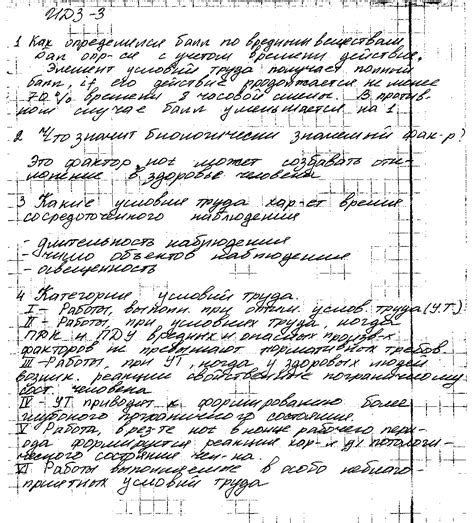 ИДЗ-3
1 Как определился балл по вредным веществам,
Бал опр-ся с учетом времени действие.
Элемент условий труда получает полный
балл, if его действие продолжается не менее
70 % времени 8 часовой смене. В против-
ном случае балл уменьшается на 1.
2 Что значит биологически значемый фак-р?
Это фактор, кот может создавать отк-
лонение в здоровье человека
3 Какие условия труда хар-ет время
сосредоточенного наблюдения
- длительность наблюдения
- число объектов наблюдение
- освещенность
4 Категории условий труда.
I - Работы, выполн. при оптим. услов. труда (У.Т.)
II - Работы, при условиях труда, когда
ПДК и ПДУ вредных и опасных произв-х
факторов не превышают нормативных требов.
III - Работы, при УТ, когда у здоровых людей
возник. реакции свойственные пограничному
сост. человека.
IV УТ приводит к формированию более
глубокого органического состояния.
V Работа, в рез-те кот в конце рабочего пери-
ода формируется реакция хар-я д/ патологи-
ческого состояния чел-ка.
VI Работы выполняемые в особо неблаго-
приятных условий труда